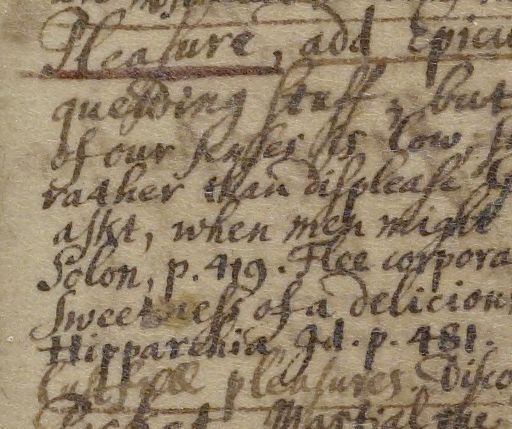 Pleasure, add Epicu
queĩding stuff, but
of our senses is low, s
rather than displease
askt, when men might
Solon, p. 419. Flee corpora
Sweetness of a delicious
Hipparchia, Id. p. 481.
pleasures. Disco
Martial